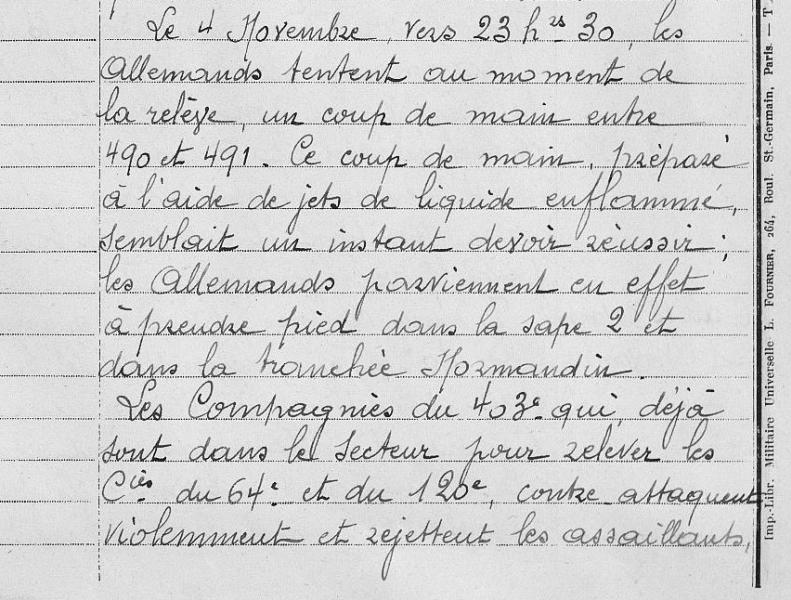 Le 4 Novembre, vers 23 hrs 30, les
Allemands tentent au moment de
la relève, un coup de main entre
490 et 491. Ce coup de main, préparé
à l'aide de jets de liquide enflammé,
semblait un instant devoir réussir;
les Allemands parviennent en effet
à prendre pied dans la sape 2 et
dans la tranchée Normandin.
Les Compagnies du 403e qui, déjà
sont dans le secteur pour relever les
Cies du 64e et du 120e, contre-attaquent
violemment et rejettent les assaillants,
Imp.-Libr. Militaire Universelle L. FOURNIER, 264, Boul. St-Germain, Paris. — T